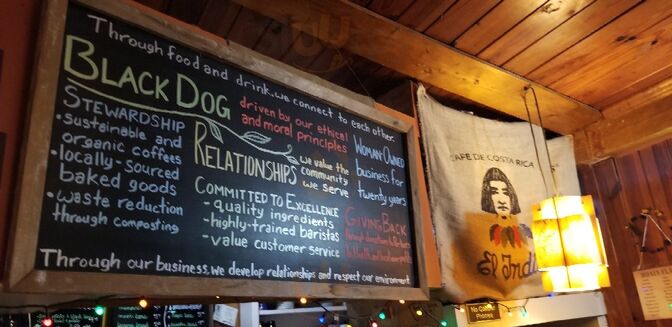 Through food and drink, we connect to each other.
BLACK DOG
driven by our ethical
and moral principles
STEWARDSHIP
• sustainable and
organic coffees
• locally-sourced
baked goods
• waste reduction
through composting
RELATIONSHIPS
we value the
community
we serve
COMMITTED TO EXCELLENCE
- quality ingredients
- highly-trained baristas
- value customer service
WOMAN-OWNED
business for
twenty years
GIVING BACK
through
Through our business, we develop relationships and respect our environment
CAFE DE COSTA RICA
El Indi
No
Phones